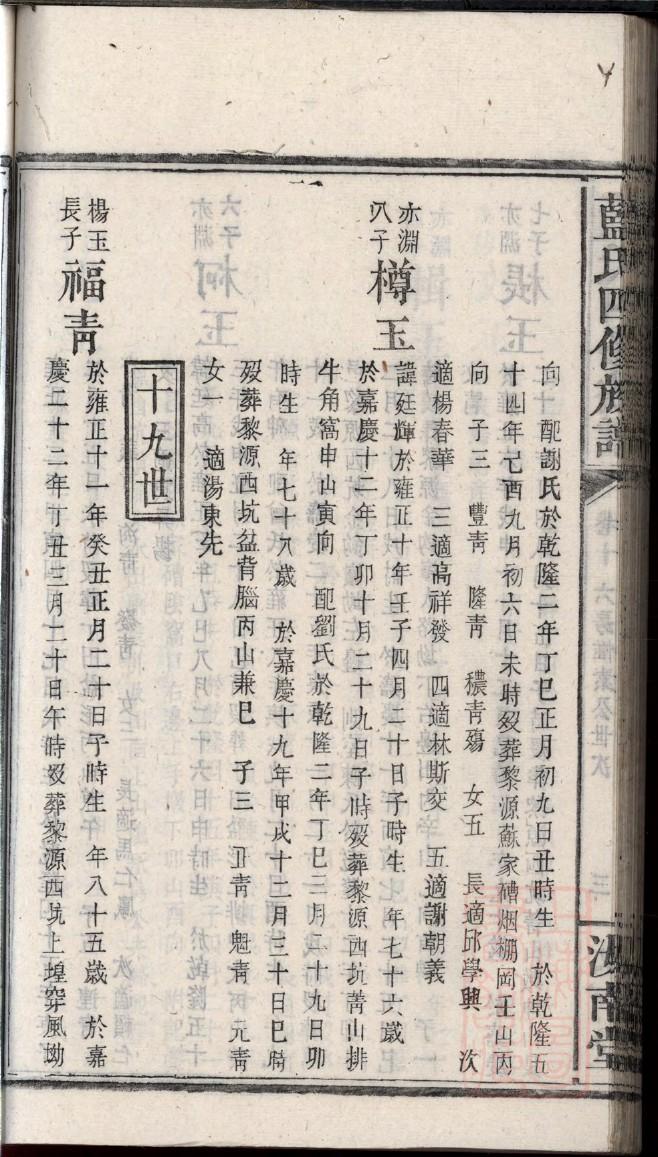 藍氏四修族譜
汝南堂
向 配謝氏於乾隆二年丁巳正月初九日丑時生 於乾隆五
十四年己酉九月初六日未時歿葬黎源蘇家𥕢烟棚岡壬山丙
向 子三 豐靑 隆靑 穠靑殤 女五 長適邱學興 次
適楊春華 三適高祥發 四適林斯交 五適謝朝義
亦淵
八子 樽玉 諱廷輝於雍正十年壬子四月二十日子時生 年七十六歲
於嘉慶十二年丁卯十月二十九日子時歿葬黎源西坑菁山排
牛角窩申山寅向 配劉氏於乾隆二年丁巳三月二十九日卯
時生 年七十八歲 於嘉慶十九年甲戌十二月三十日巳時
歿葬黎源西坑盆背腦丙山兼巳 子三 正靑 魁靑 元靑
女一 適湯東先
十九世
楊玉
長子 福靑 於雍正十一年癸丑正月二十日子時生 年八十五歲 於嘉
慶二十二年丁丑三月二十日午時歿葬黎源西坑上埕穿風坳